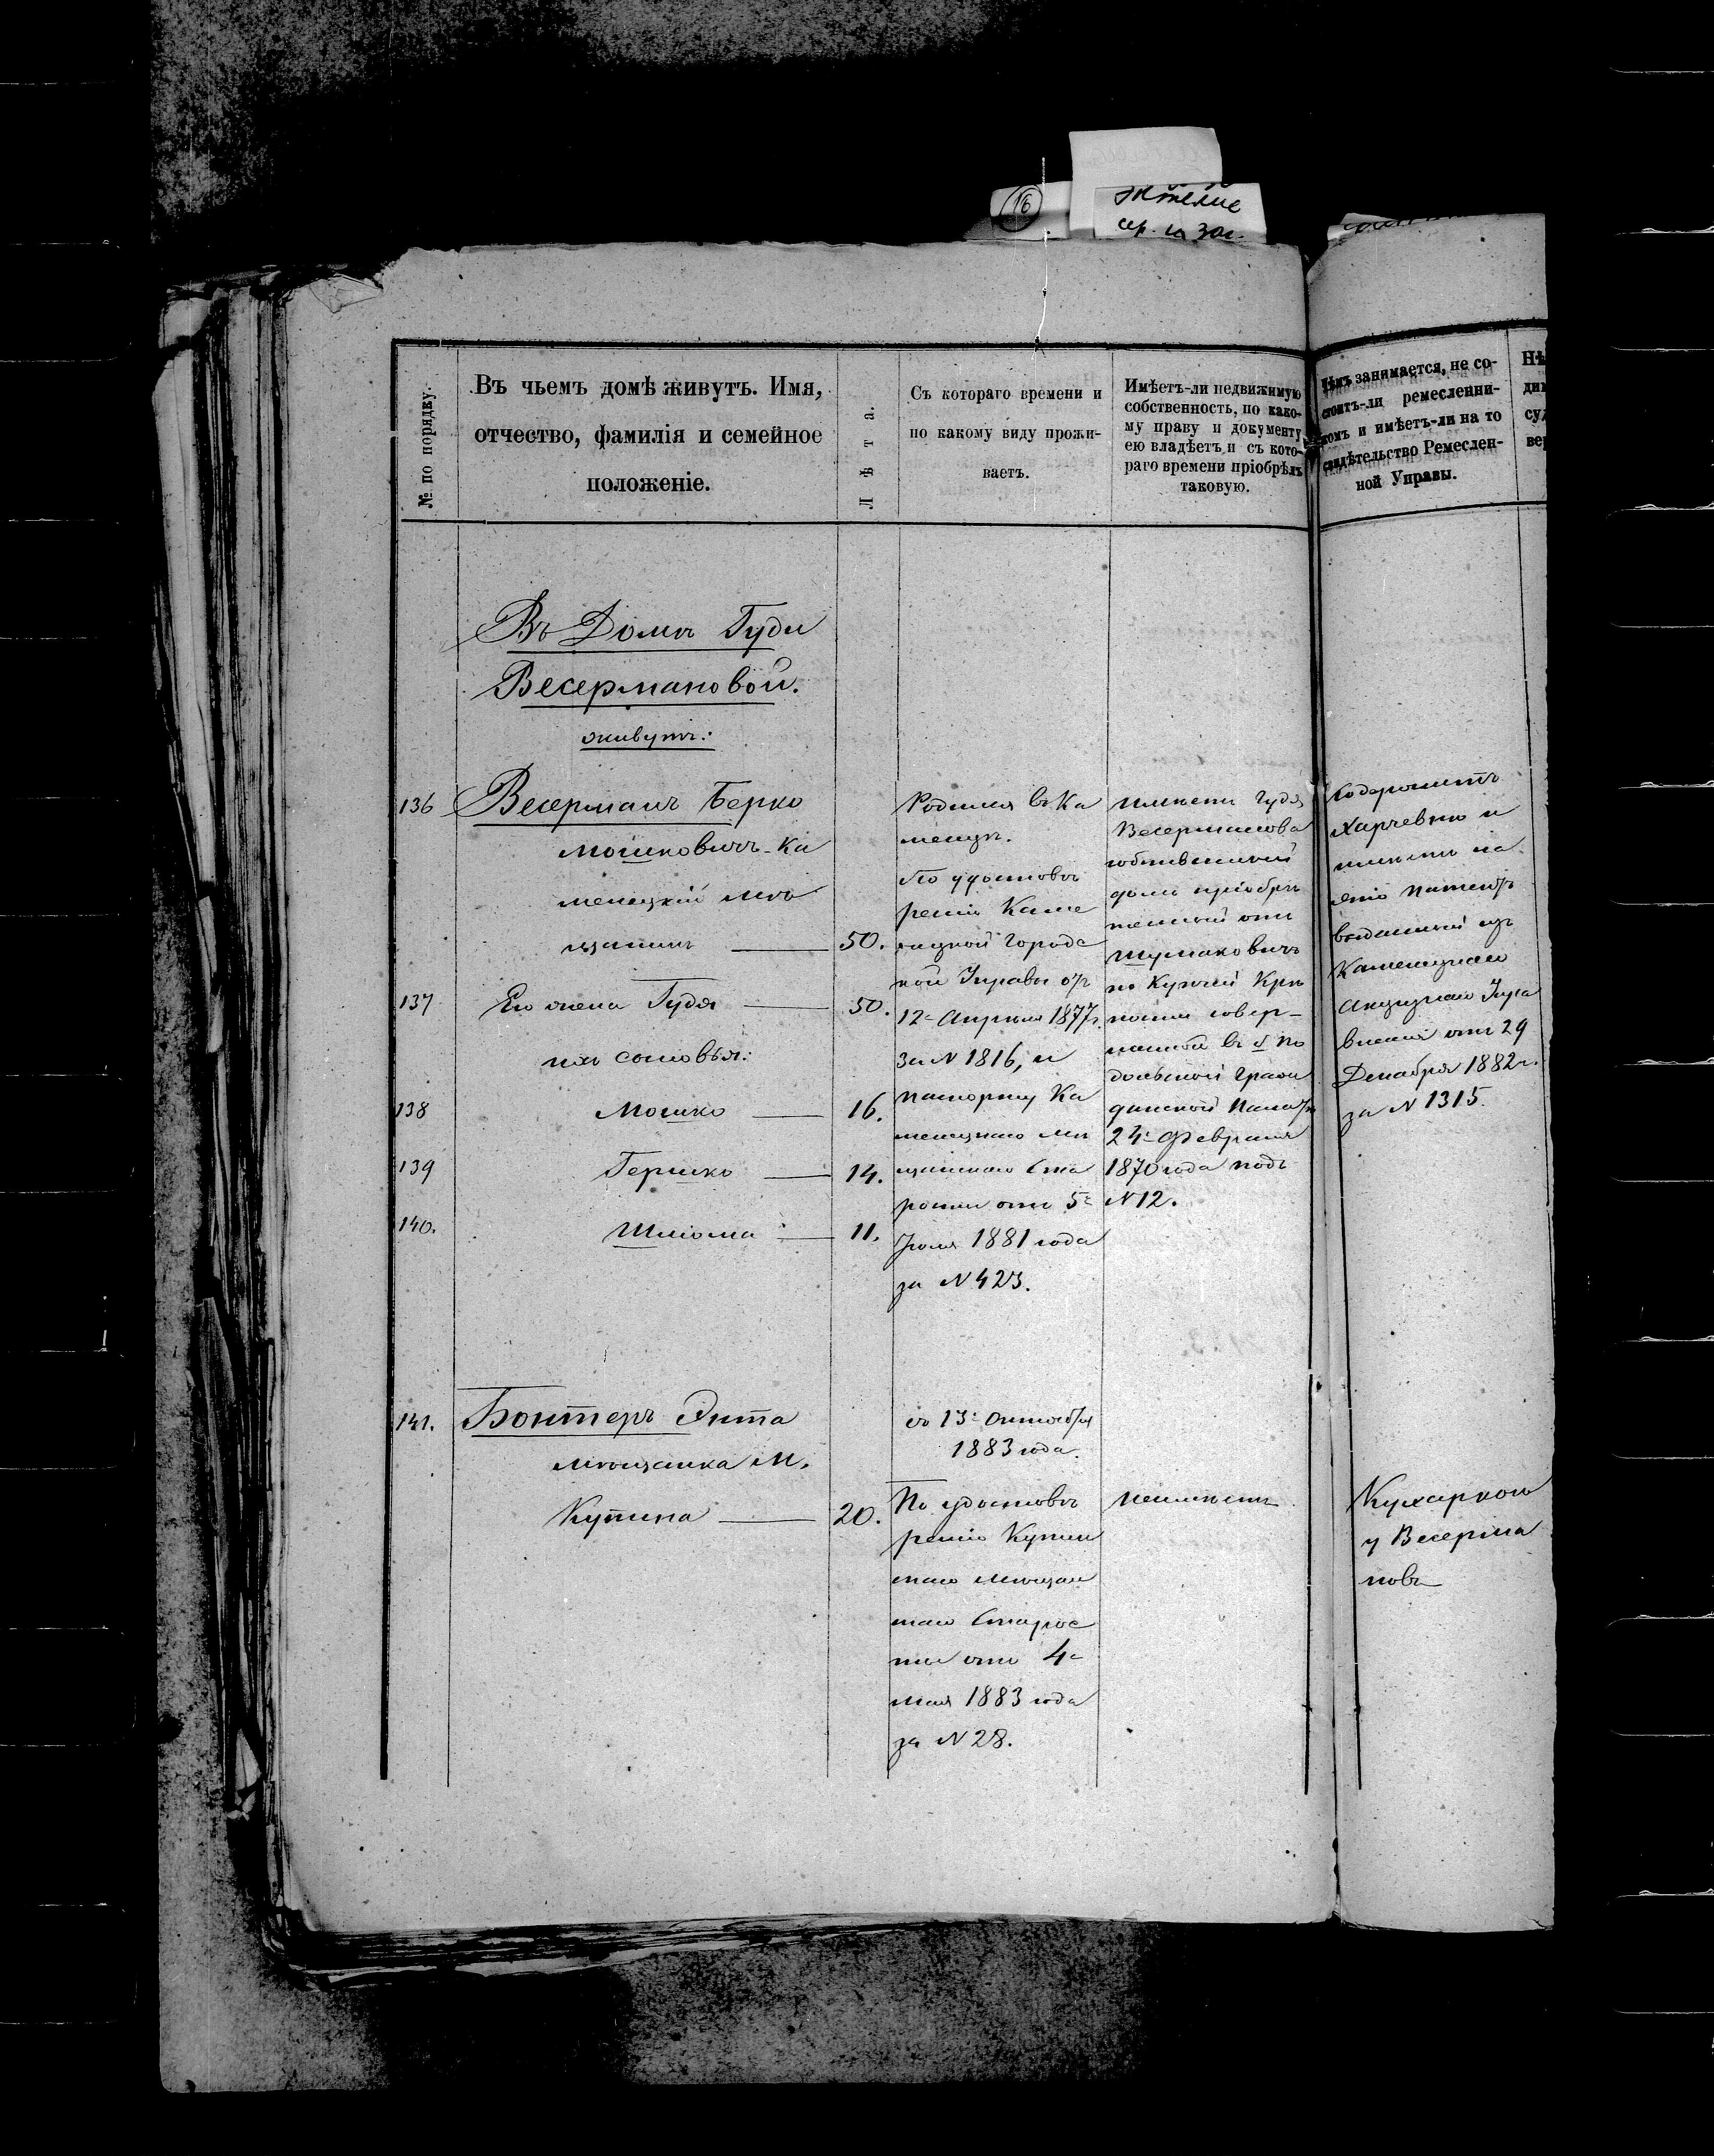 16
житые
сер. и зог.
№ по порядку.
Въ чьемъ домѣ живутъ. Имя,
отчество, фамилія и семейное
положеніе.
Лѣта.
Съ котораго времени и
по какому виду прожи-
ваетъ.
Имѣетъ-ли недвижимую
собственность, по како-
му праву и документу
ею владѣетъ и съ кото-
раго времени пріобрѣлъ
таковую.
Чѣмъ занимается, не со-
стоитъ-ли ремесленни-
комъ и имѣетъ-ли на то
свидѣтельство Ремеслен-
ной Управы.
Въ Домѣ Гуди
Весермановой.
живутъ:
136
Весерманъ Берко
Мошковичъ-Ка
менецкій мѣ
щанинъ
50.
137
Его жена Гудя
50.
ихъ сыновья:
138
Мошко
16.
139
Гершко
14.
140.
Шліома
11.
Родился въ Ка
менцѣ.
По удостовѣ
ренію Каме
нецкой Городс
кой Управы отъ
12го Апрѣля 1877г.
за N 1816, и
паспорту Ка
менецкаго мѣ
щанскаго Ста
росты отъ 5го
Іюля 1881 года
за N 423.
Имѣетъ Гудя
Весерманова
собственный
домъ пріобрѣ
тенный отъ
Шумановичъ
по Купчей Крѣ
пости совер-
шенной въ По
дольской Граж
данской Палатѣ
24го Февраля
1870 года подъ
N 12.
Содержитъ
Харчевню и
имѣетъ на
это патентъ
выданный изъ
Каменецкаго
Акцизнаго Упра
вленія отъ 29
Декабря 1882 г.
за N 1315.
141.
Бонтеръ Энта
мѣщанка м.
Купина
20.
съ 13го Октября
1883 года.
По удостовѣ
ренію Купин
скаго мѣщан
скаго Старос
ты отъ 4го
мая 1883 года
за N 28.
неимѣетъ
Кухаркою
у Весерма
новъ